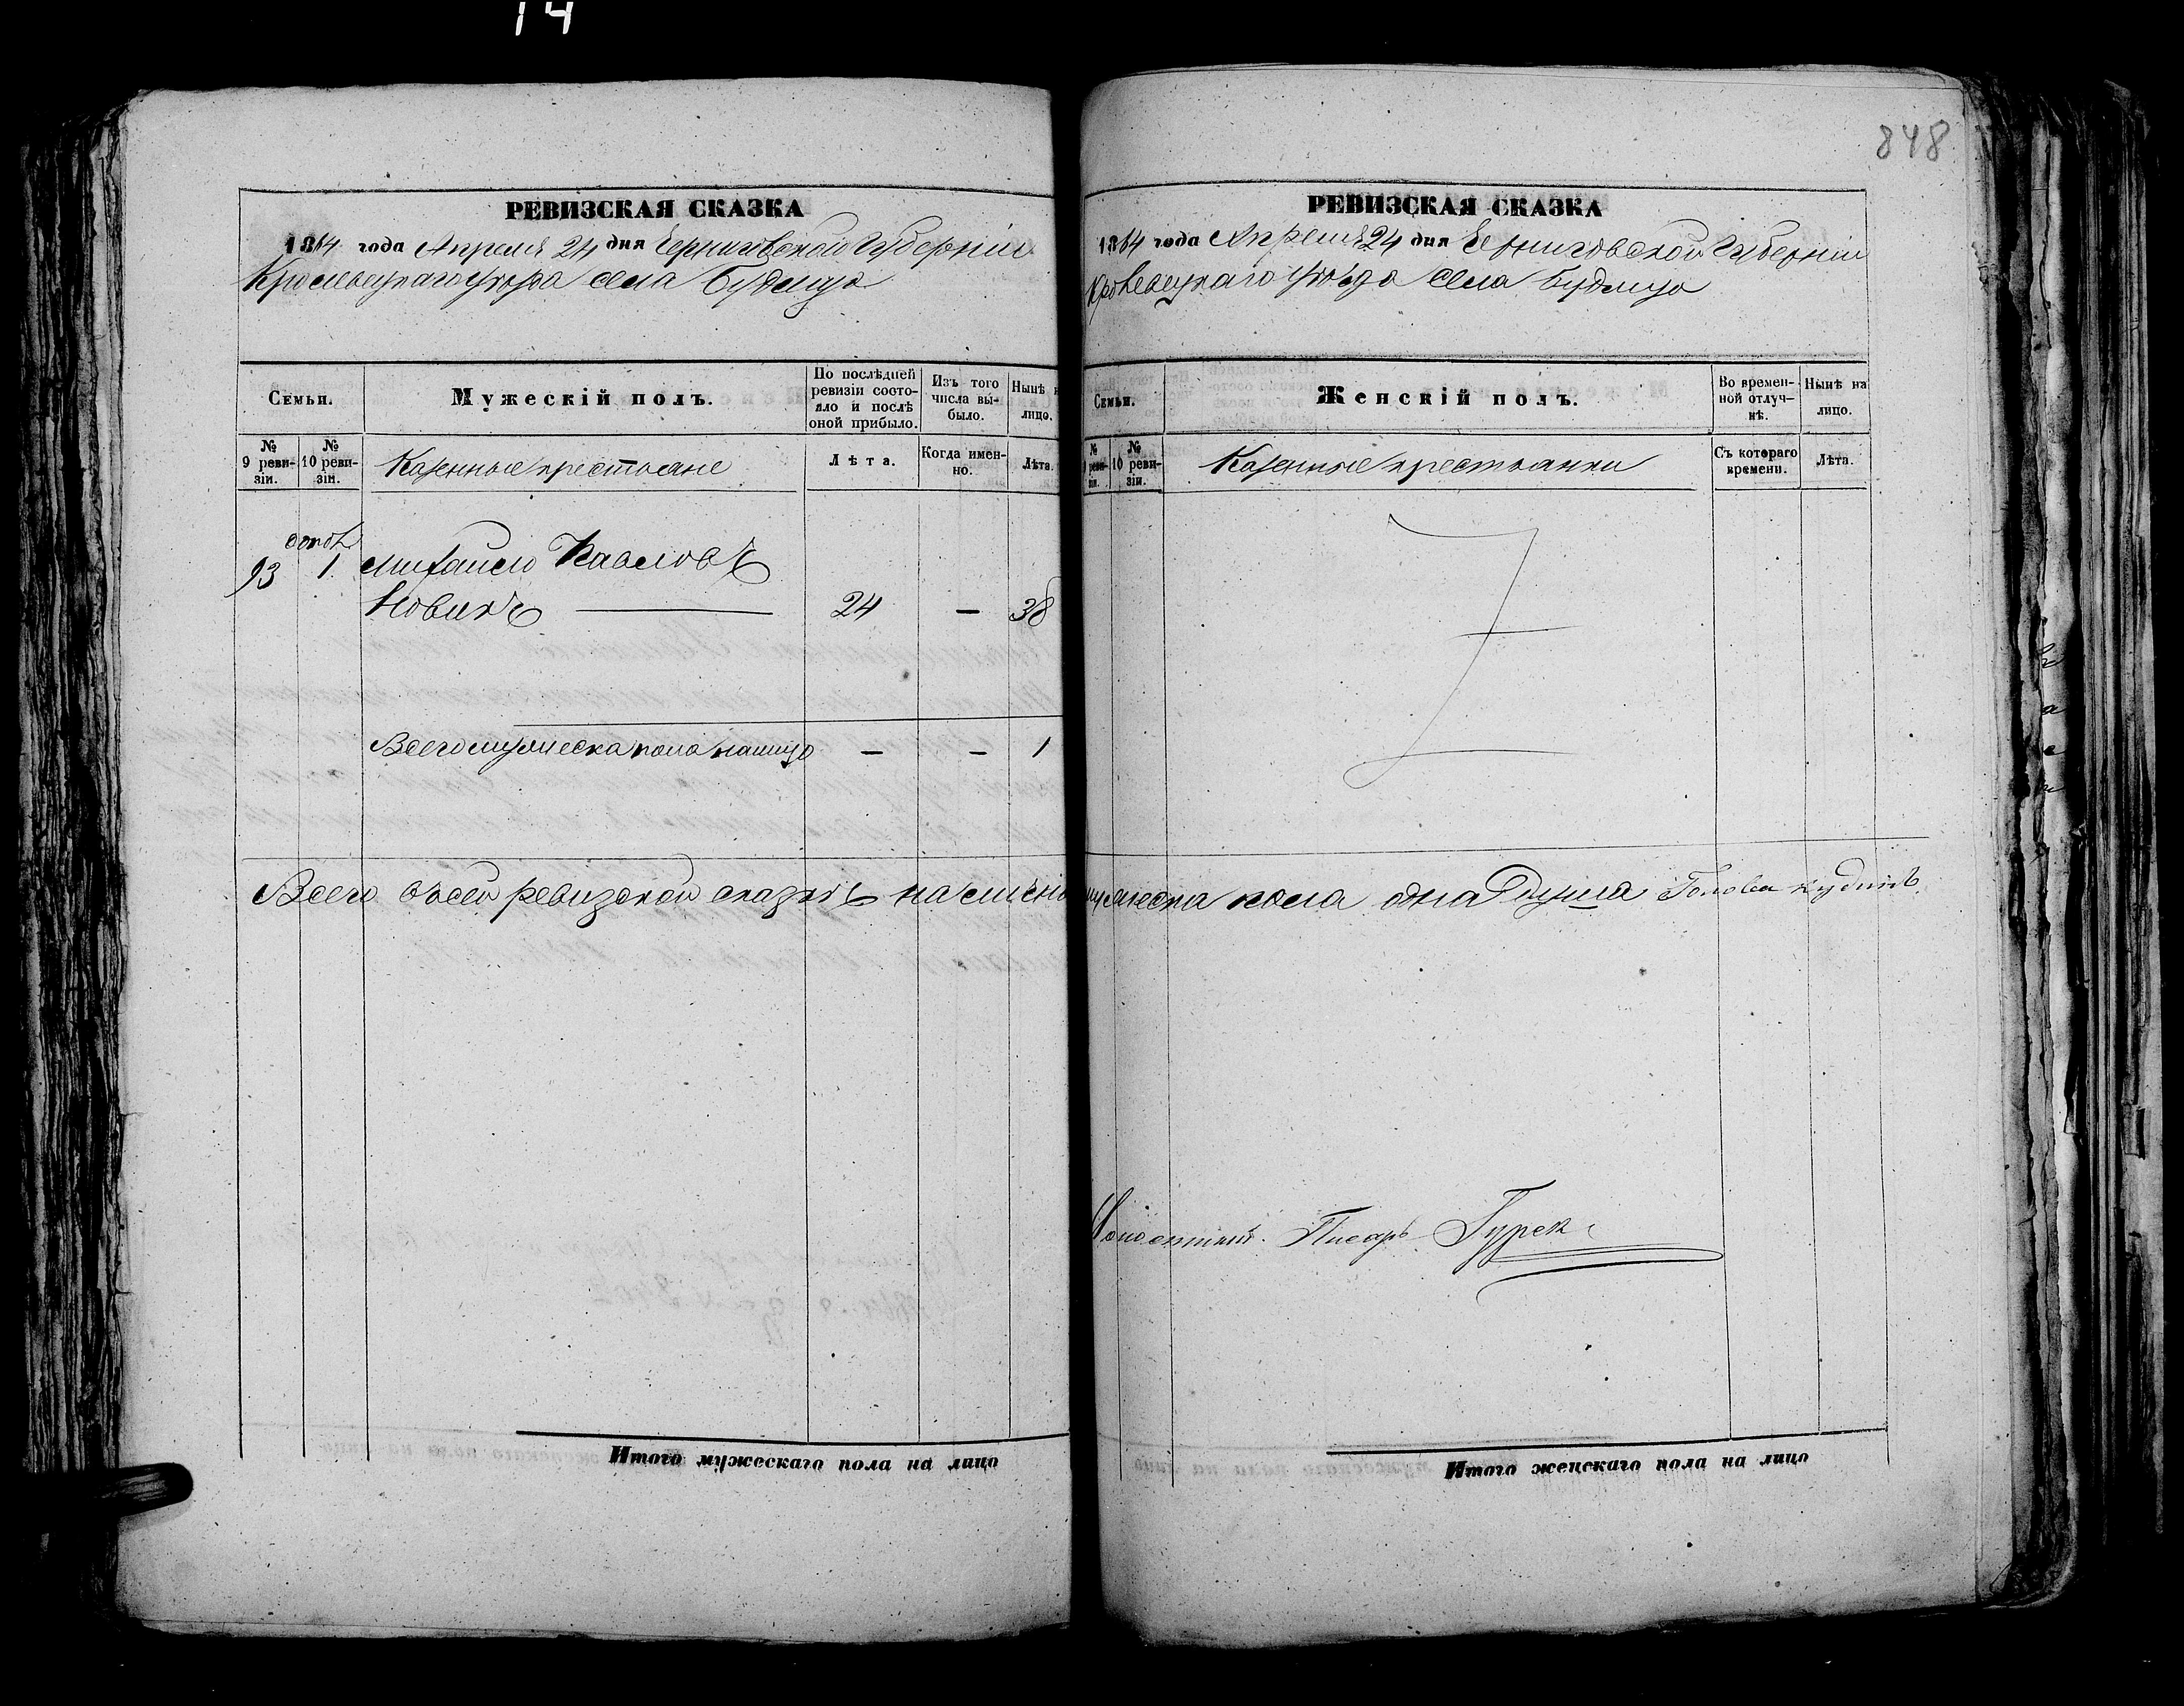 14
848
РЕВИЗСКАЯ СКАЗКА
1864 года Апреля 24 дня Черниговской Губерніи
Кролевецкаго уѣзда села Будища
Семьи.
Мужескій полъ.
По послѣдней ревизіи состояло и послѣ оной прибыло.
Изъ того числа выбыло.
Нынѣ н
лицо.
№ 9 ревизіи.
№ 10 ревизіи.
Казенные крестьяне
Лѣта.
Когда именно.
Лѣта.
93 1 Михайло Павловъ
Новикъ 24 — 38
Всего мужеска пола налицо — — 1
Всего въ сей ревизской сказкѣ
Итого мужескаго пола на лицо
РЕВИЗСКАЯ СКАЗКА
1864 года Апреля 24 дня Черниговской Губерніи
Кролевецкаго уѣзда села Будища
Семьи.
Женскій полъ.
Во временной отлучкѣ.
Нынѣ на лицо.
№ 9 ревизіи.
№ 10 ревизіи.
Казенные крестьянки
Съ котораго времени.
Лѣта.
мужеска пола одна душа Голова
Волостный Писарь
Итого женскаго пола на лицо